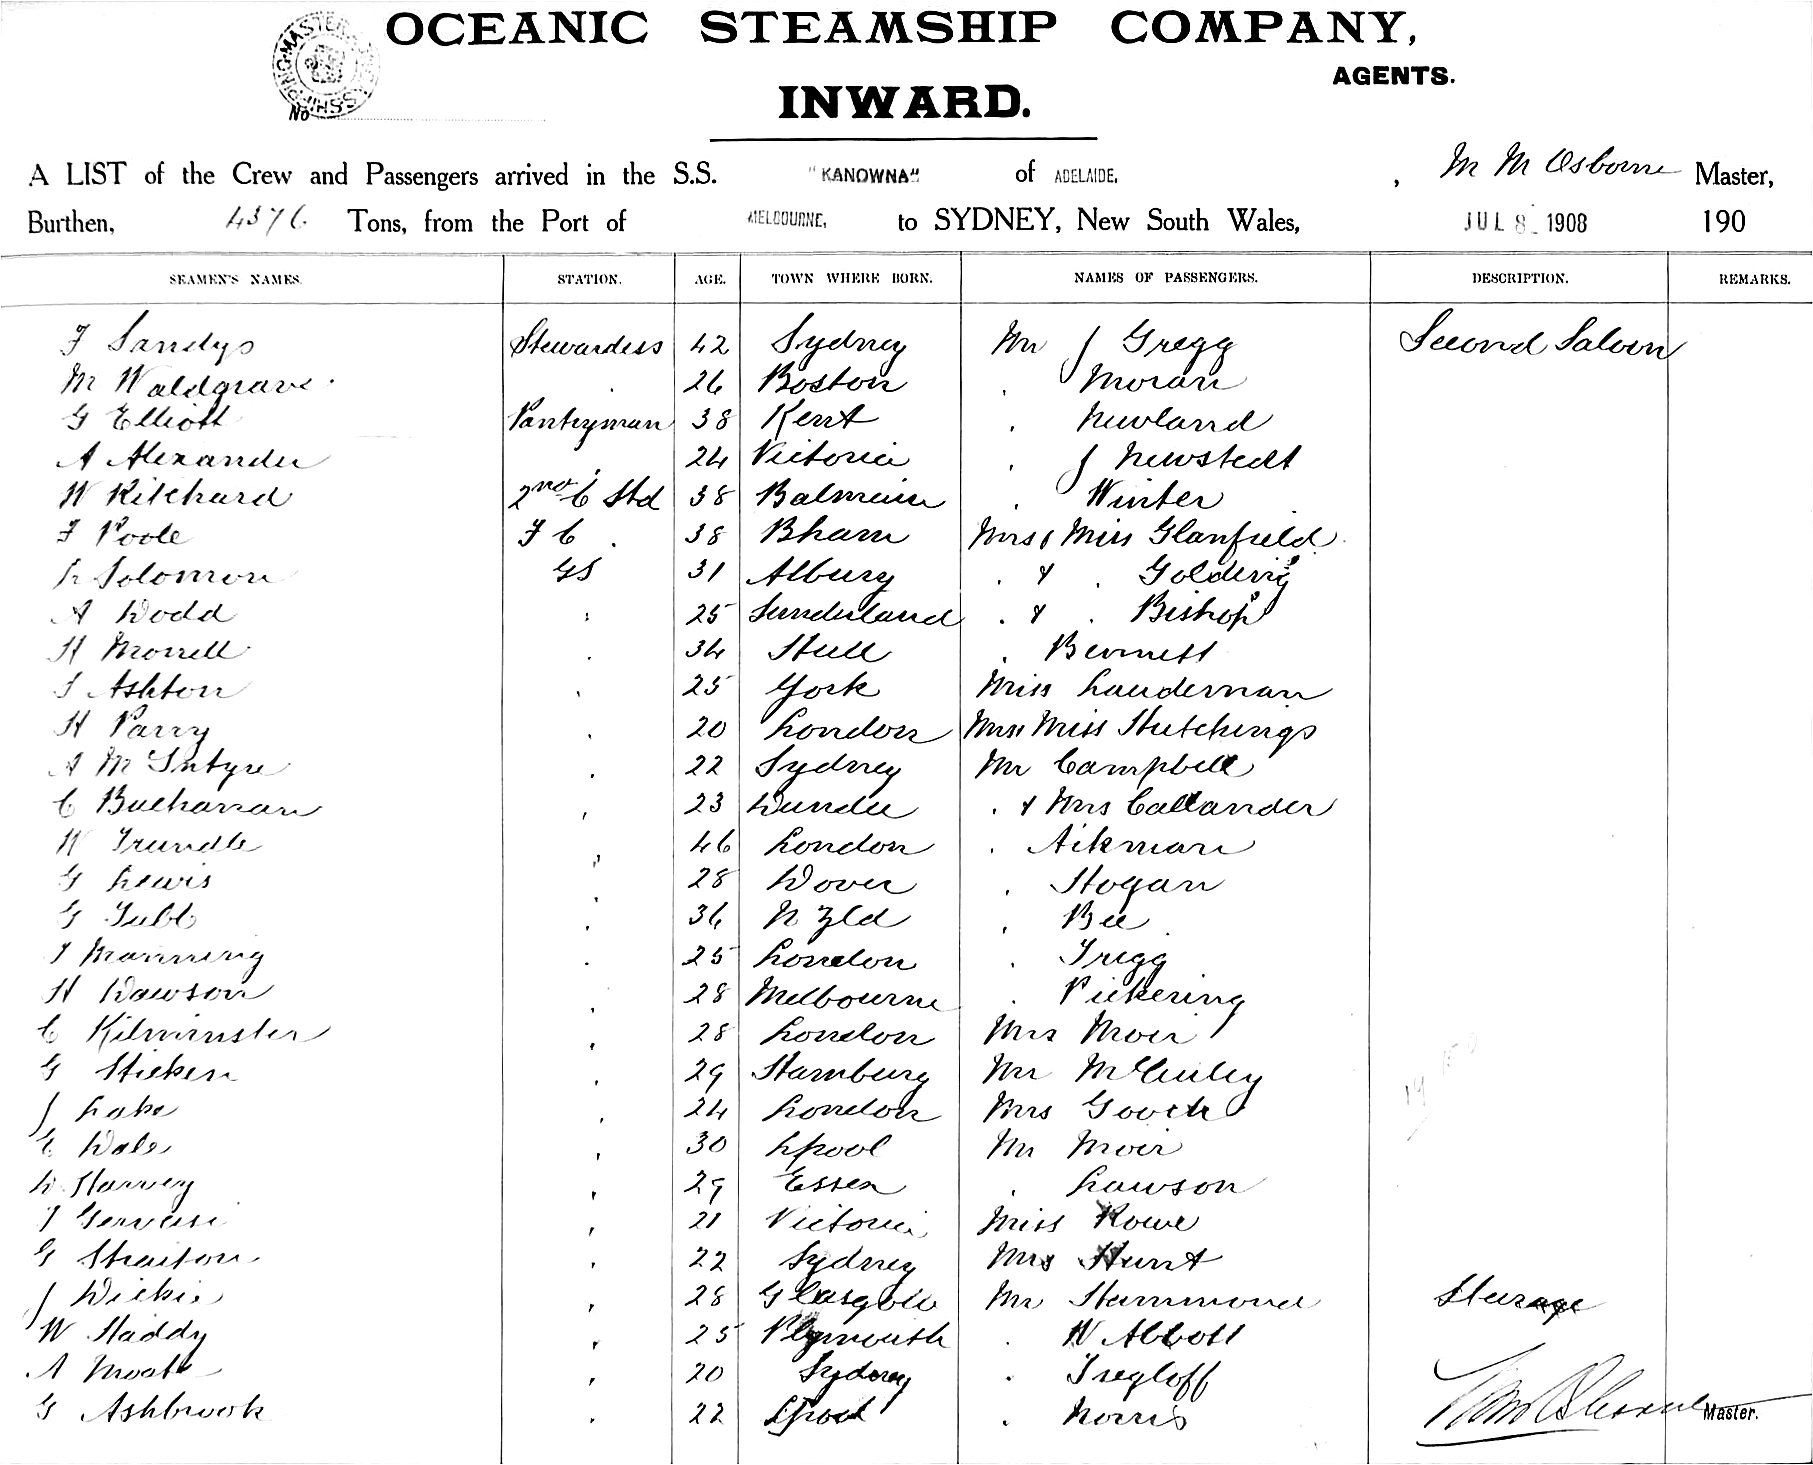 OCEANIC STEAMSHIP COMPANY,
AGENTS.
INWARD.
No
A LIST of the Crew and Passengers arrived in the S.S. "KANOWNA" of ADELAIDE, , M M Osborne Master,
Burthen, 4376 Tons, from the Port of MELBOURNE, to SYDNEY, New South Wales, JUL 8 1908 190
SEAMEN'S NAMES. STATION. AGE. TOWN WHERE BORN. NAMES OF PASSENGERS. DESCRIPTION. REMARKS.
F Sandys Stewardess 42 Sydney Mr J Gregg Second Saloon
M Waldgrave . 26 Boston . Moran
G Elliott Pantryman 38 Kent . Newland
A Alexander 24 Victoria . J Newstedt
W Ritchard 2nd C Std 38 Balmain . Winter
F Poole F C . 38 Bham Mrs & Miss Glanfield
Solomon GS 31 Albury . & . Golding
A Dodd 25 Sunderland . & . Bishop
H Morrell . 34 Hull . Bennett
Ashton . 25 York Miss Lauderman
H Parry . 20 London Mrs Miss Hutchings
A McIntyre . 22 Sydney Mr Campbell
C Buchanan , 23 Dundee . & Mrs Callander
W Trundle , 46 London . Aikman
G Lewis , 28 Dover . Hogan
G Tubb . 36 N Zld . Bee
Manning . 25 London . Tregg
H Dawson , 28 Melbourne . Pickering
C Kilminster , 28 London Mrs Moir
G Hicken , 29 Hamburg Mr McCauley
J Lake , 24 London Mrs Gooch
E Dale , 30 Lpool Mr Moir
D Harvey , 29 Essex . Lawson
Gervasi , 21 Victoria Miss Rowe
G Straiton , 22 Sydney Mrs Hunt
J Dickie , 28 Glasgow Mr Hammond Steerage
W Haddy , 25 Plymouth . W Abbott
A Moate , 20 Sydney . Tregloff
G Ashbrook . 22 Lpool . Norris
Master.